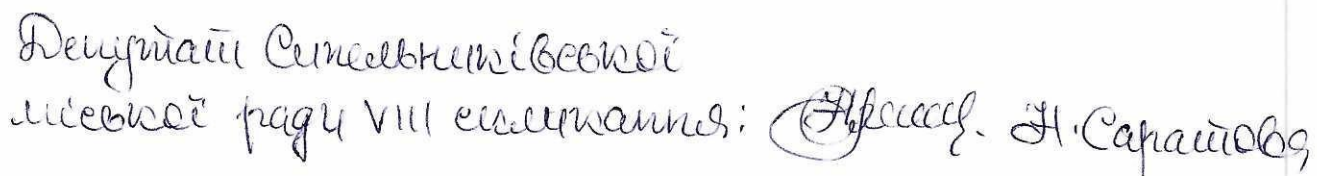 Депутат Синельниківської
міської ради VIII скликання: Н. Саратова